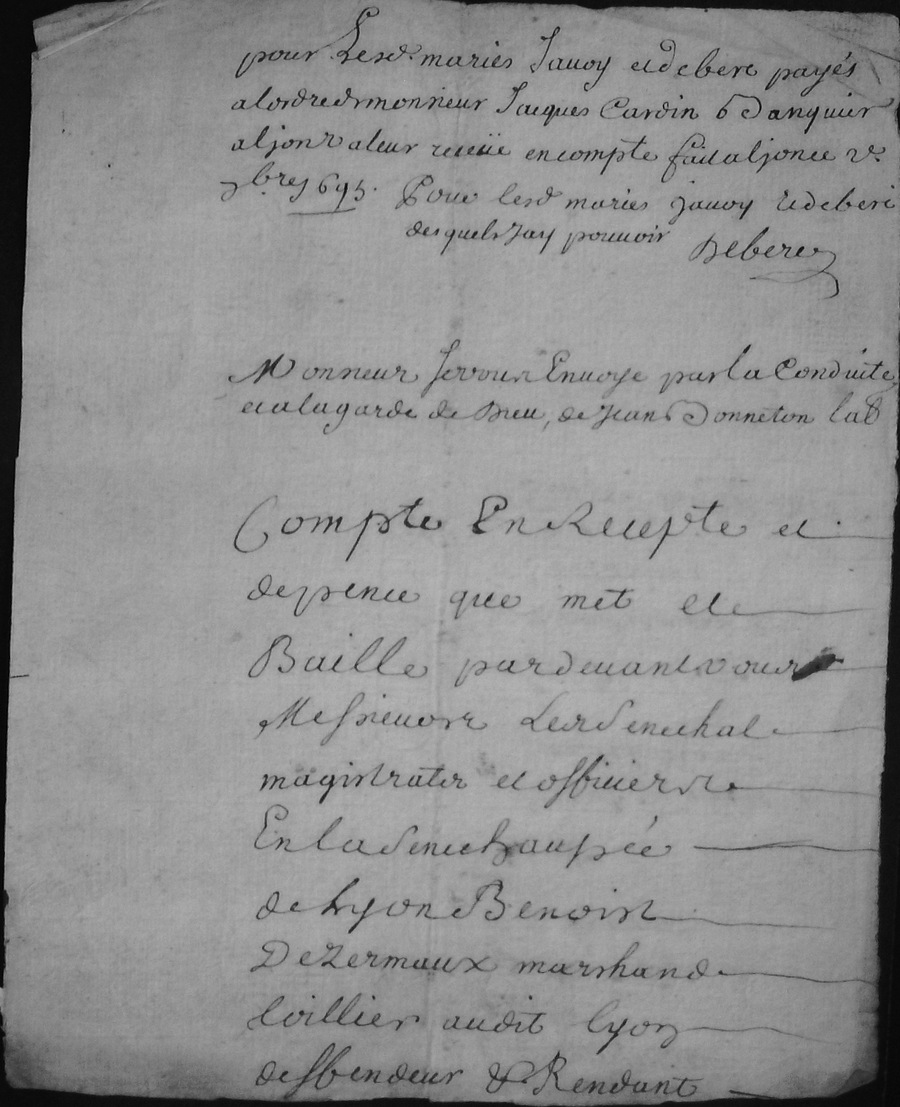 pour Lesd. maries Jauoy et debere payés
a lordre de monsieur Jacques Cardin Banquier
a Lion valeur receüe en compte fait a Lion ce 2e
9bre 1695. Pour lesd maries Jauoy et debere
desquels Jay pouuoir Debere
Monsieur Envoye par la Conduite
et a la garde de Dieu, de Jean Bonneton
Compte En Recepte et
depence que met et
Baille pardeuant vous
Messieurs Les Senechal
magistrats et officiers
En la Senechaupée
de Lyon Benoist
Dezermaux marchand
toillier audit Lyon
deffendeur & Rendant